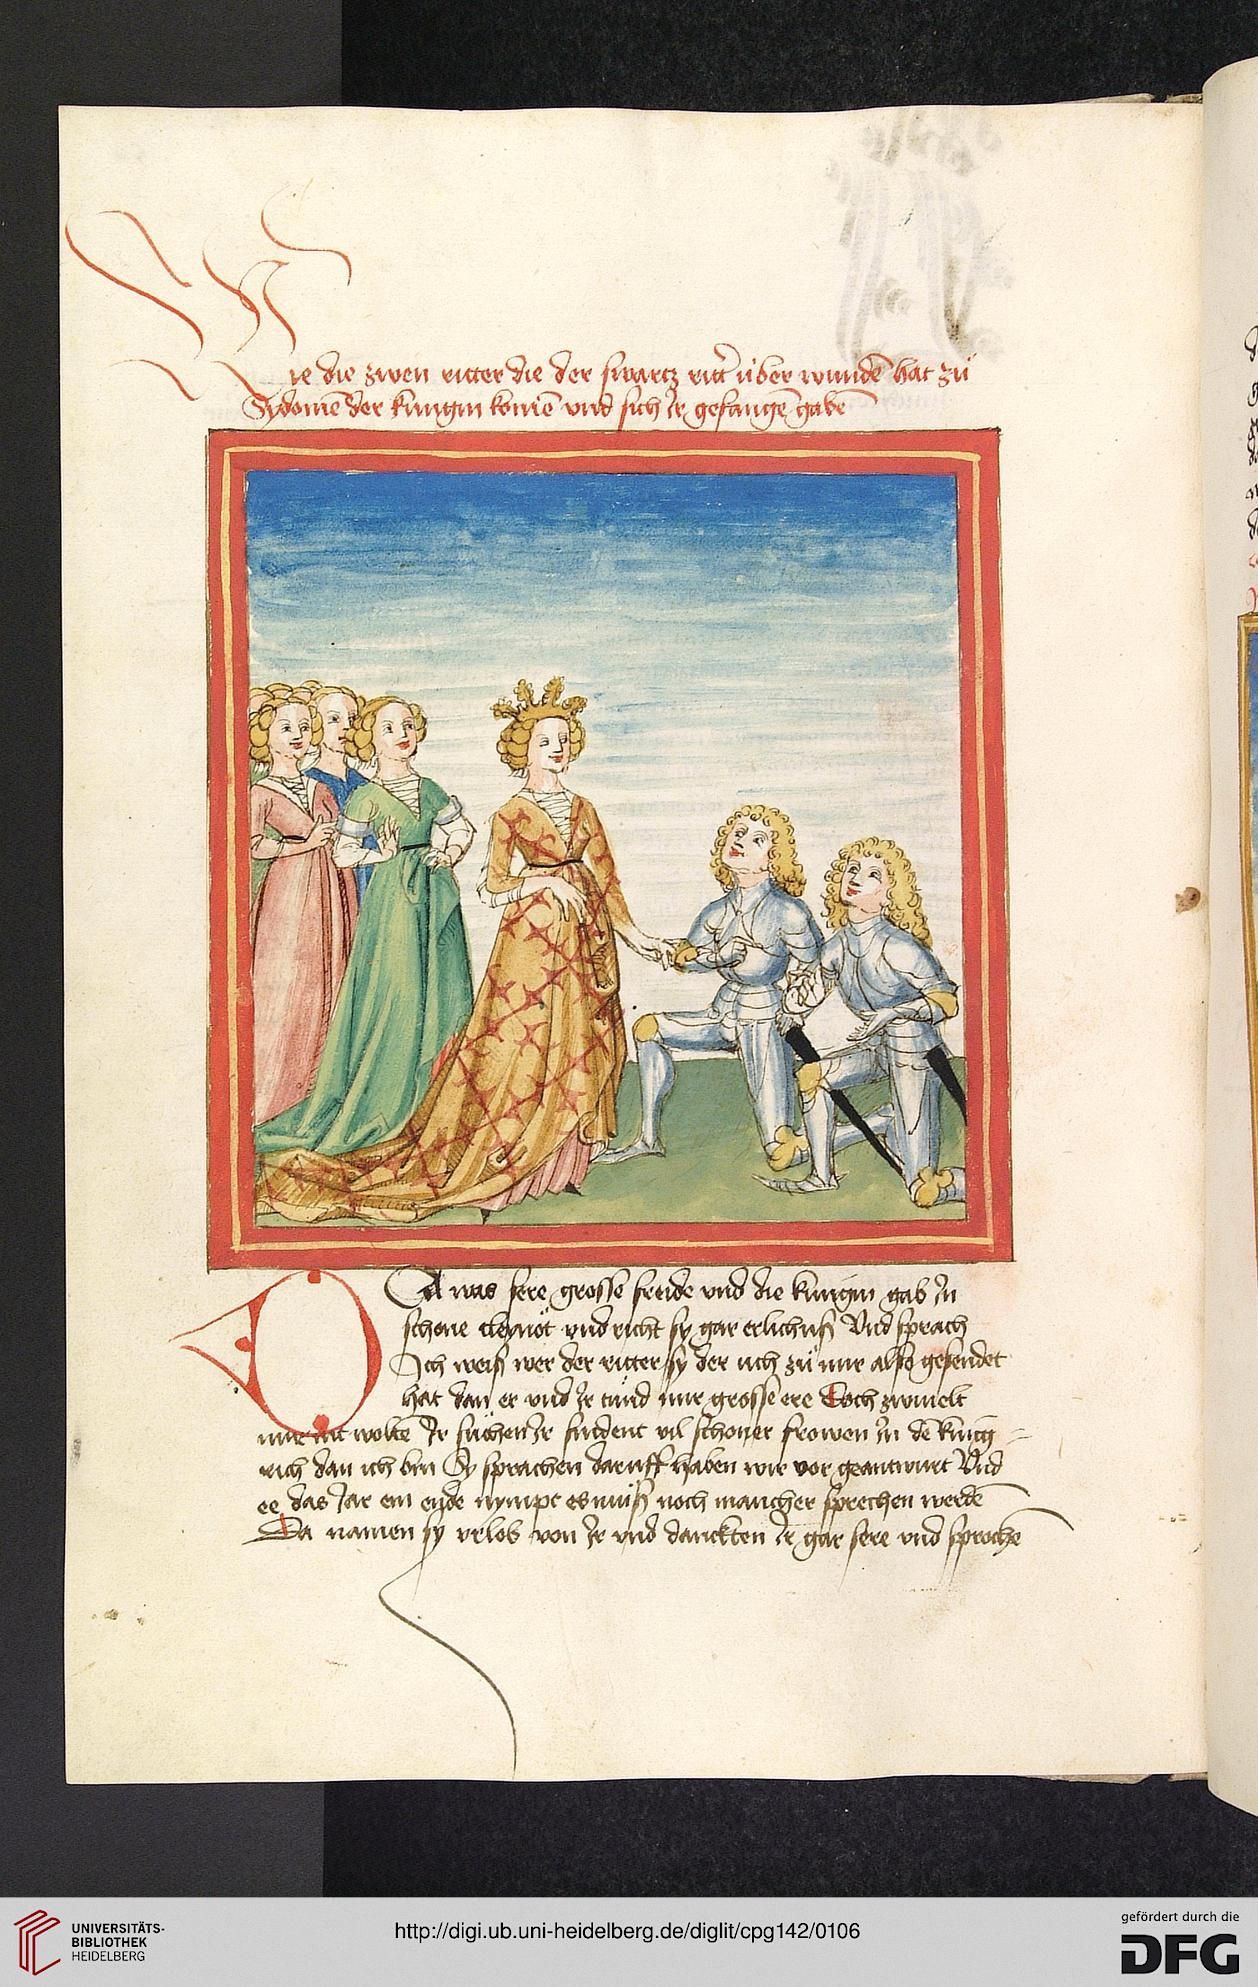 Wie die zwen ritter die der swartz ritt̾ über wundē hat zü
Sydomē der küngin komē vnd sich Ir gefangē gabē
DA was sere grosse freude vnd die küngin gab Jn
schone cleynöt vnd richt sy gar erlich vß Vnd sprach
Ich weiß wer der ritter sy der uch zü mir also gesendet
hat dan er vnd Ir tünd mir grosse ere Doch zwiuelt
mir nit wolte Ir süchen Ir fundent vil schoner frowen Jn dē küng
rich dan ich bin Sy sprachen daruff haben wir vor geantwurt Vnd
ee das Jar ein ende nympt es müß noch mancher sprechen werdē
Da namen sy vrlob von Ir vnd danckten Ir gar sere vnd sprachē
UNIVERSITÄTS-
BIBLIOTHEK
HEIDELBERG
http://digi.ub.uni-heidelberg.de/diglit/cpg142/0106
gefördert durch die
DFG